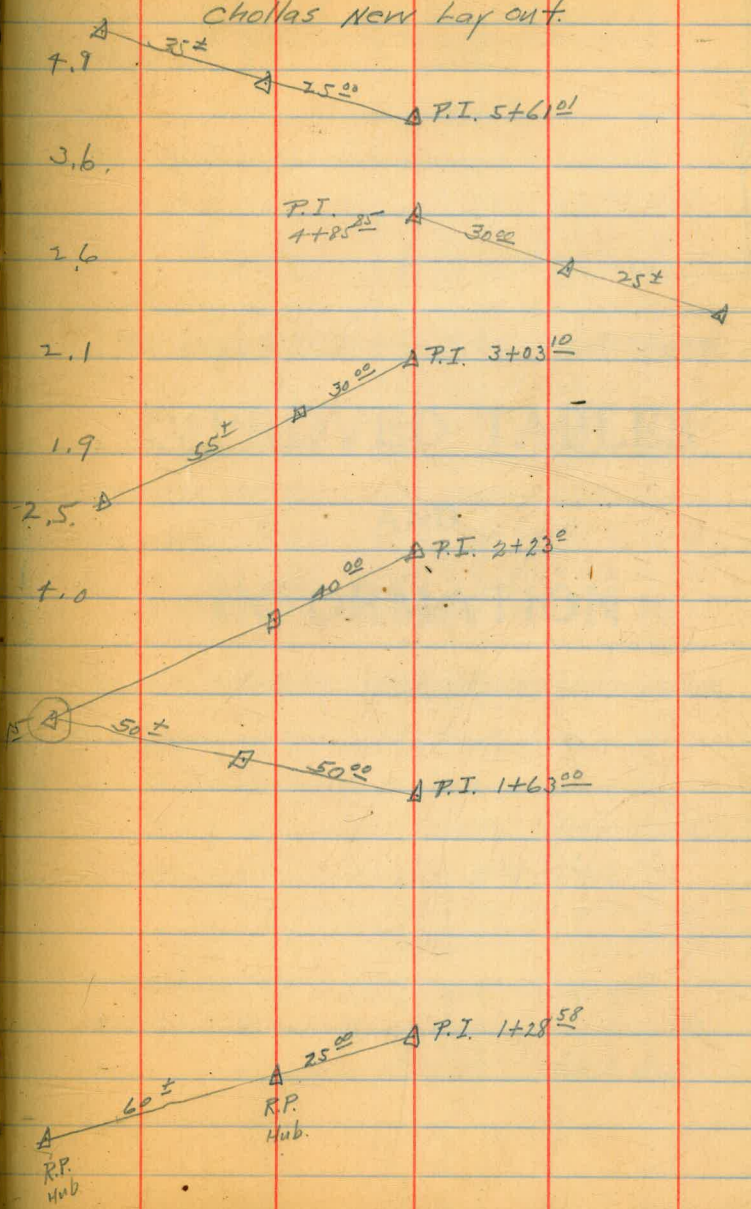 Chollas New Lay out.
35±
4.9
25 00
P.I. 5+61 01
3.6.
P.I.
4+85 85
30 00
2.6
25±
2.1
P.I. 3+03 10
30 00
55±
1.9
2.5.
P.I. 2+23 0
40 00
4.0
50±
50 00
P.I. 1+63 00
P.I. 1+28 58
25 00
60±
R.P.
Hub.
R.P.
Hub